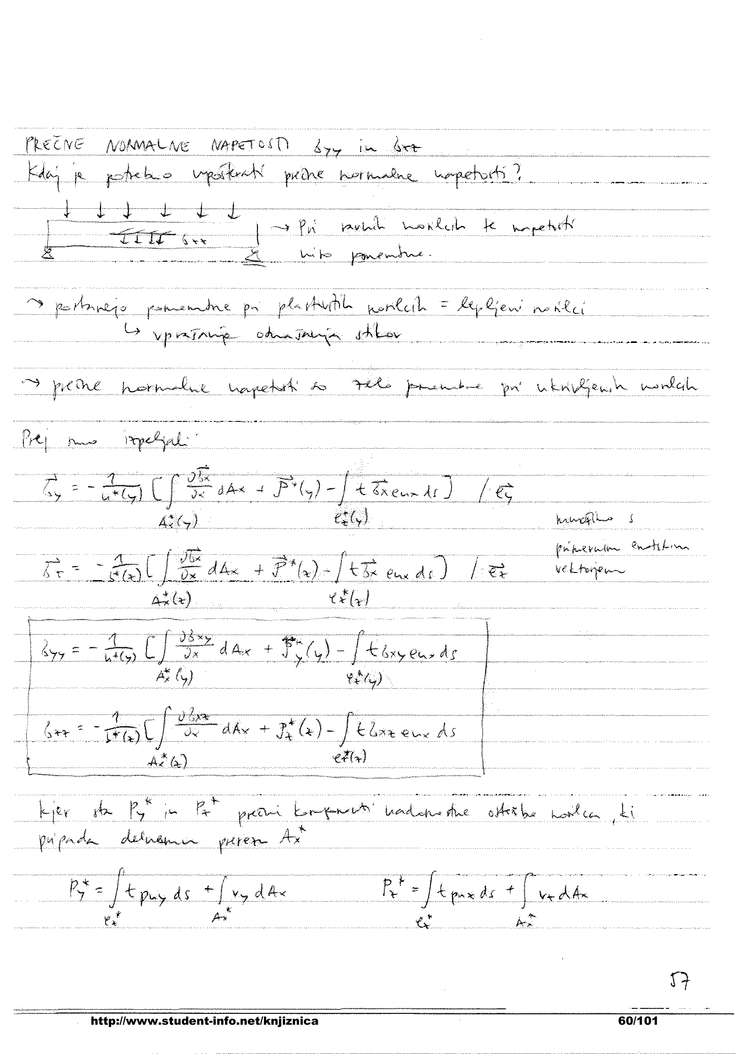 PREČNE NORMALNE NAPETOSTI σyy in σzz
Kdaj je potrebno upoštevati prečne normalne napetosti?
σzz → Pri ravnih nosilcih te napetosti
niso pomembne.
→ postanejo pomembne pri plastovitih nosilcih = lepljeni nosilci
↳ vprašanje obnašanja stikov
→ prečne normalne napetosti so zelo pomembne pri ukrivljenih nosilcih
Prej smo izpeljali:
σ⃗y = - 1/h*(y) [ ∫ ∂σ⃗x/∂x dAx + P⃗*(y) - ∫ t σ⃗x enx ds ] / e⃗y
Ax*(y) Cx*(y)
množimo s
primernim enotskim
vektorjem
σ⃗z = - 1/b*(z) [ ∫ ∂σ⃗x/∂x dAx + P⃗*(z) - ∫ t σ⃗x enx ds ] / e⃗z
Ax*(z) Cx*(z)
σyy = - 1/h*(y) [ ∫ ∂σxy/∂x dAx + Py*(y) - ∫ t σxy enx ds
Ax*(y) Cx*(y)
σzz = - 1/b*(z) [ ∫ ∂σxz/∂x dAx + Pz*(z) - ∫ t σxz enx ds
Ax*(z) Cx*(z)
kjer sta Py* in Pz* prečni komponenti nadomestne obtežbe nosilca, ki
pripada delnemu prerezu Ax*
Py* = ∫ t pny ds + ∫ vy dAx Pz* = ∫ t pnz ds + ∫ vz dAx
Cx* Ax* Cx* Ax*
57
http://www.student-info.net/knjiznica 60/101